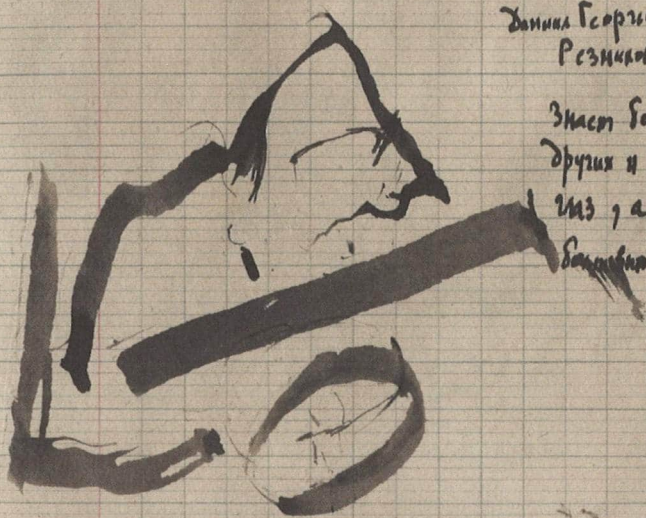 Даниил Георги
Резников
Знает бо
других и
газ, а